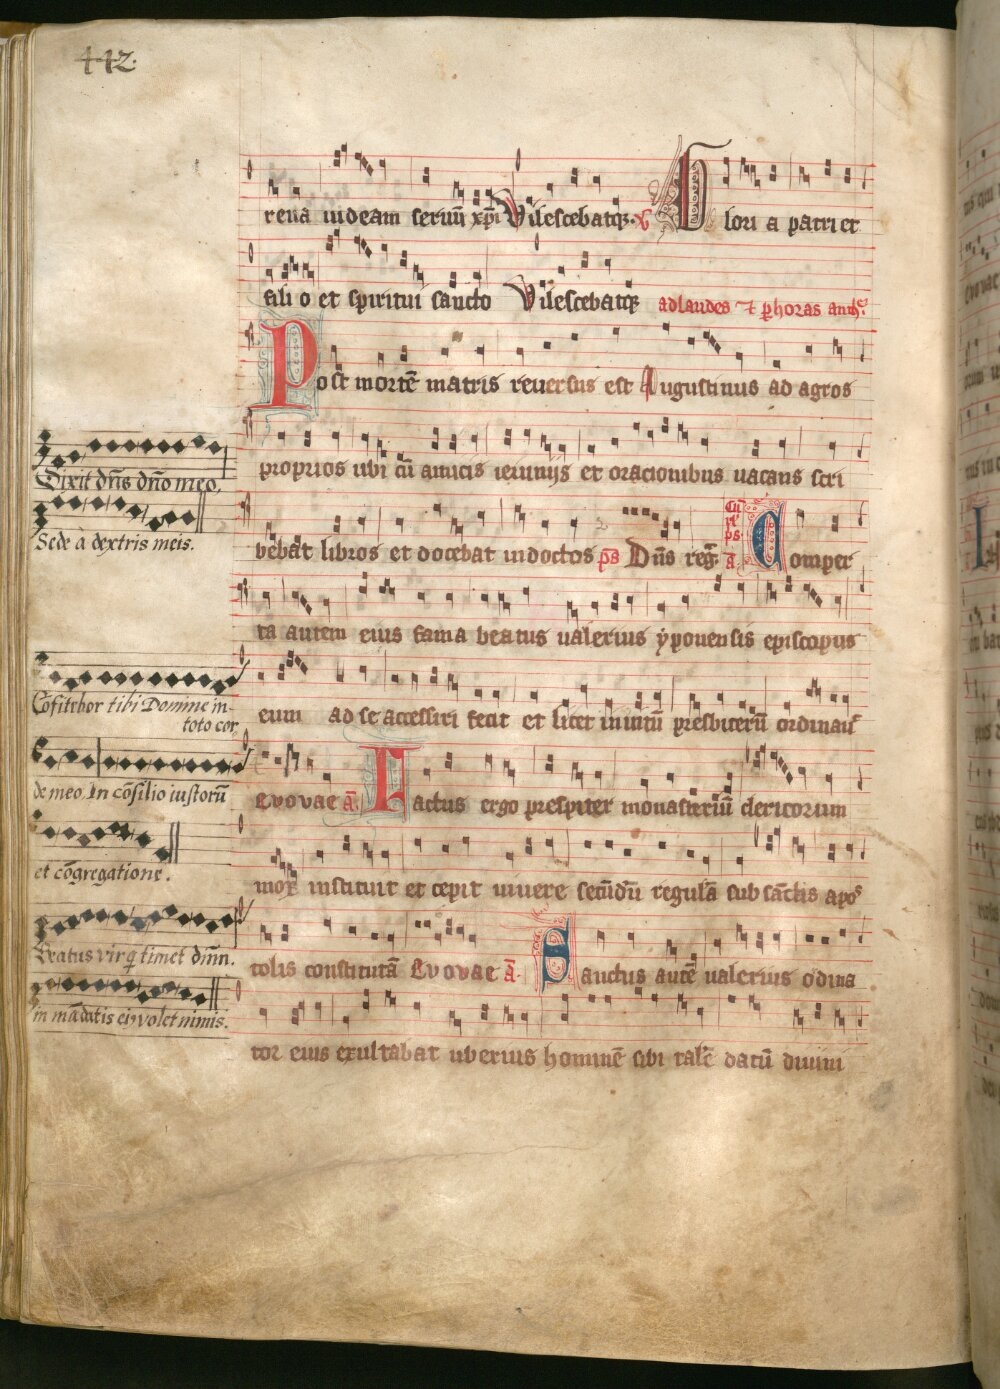 442.
rena iudeam seruū xp̄i Vilescebatqꝫ. ℣ Glori a patri et
fili o et spiritui sancto Vilescebatqꝫ ad laudes ⁊ ꝑ horas anthe
Post mortē matris reuersus est Augustinus ad agros
proprios ubi cū amicis ieiunijs et oracionibus uacans scri
bebat libros et docebat indoctos p̄s Dn̄s reḡ. a̅. Comper
ta autem eius fama beatus ualerius yponensis episcopus
eum ad se accessiri fecit et licet inuitū presbiterū ordinauit
Evovae a̅. Factus ergo prespiter monasteriū clericorum
mox instituit et cepit uiuere secūdū regulā sub sāctis apos
tolis constitutā Evovae a̅. Sanctus autē ualerius ordina
tor eius exultabat uberius hominē sibi talē datū diuini
Dixit dn̄s dn̄o meo,
Sede à dextris meis.
Cōfitebor tibi Domine in
toto cor
de meo. In cōsilio iustorū
et cōgregatione.
Beatus vir q̄ timet dn̄m.
in mādatis eiꝰ volet nimis.